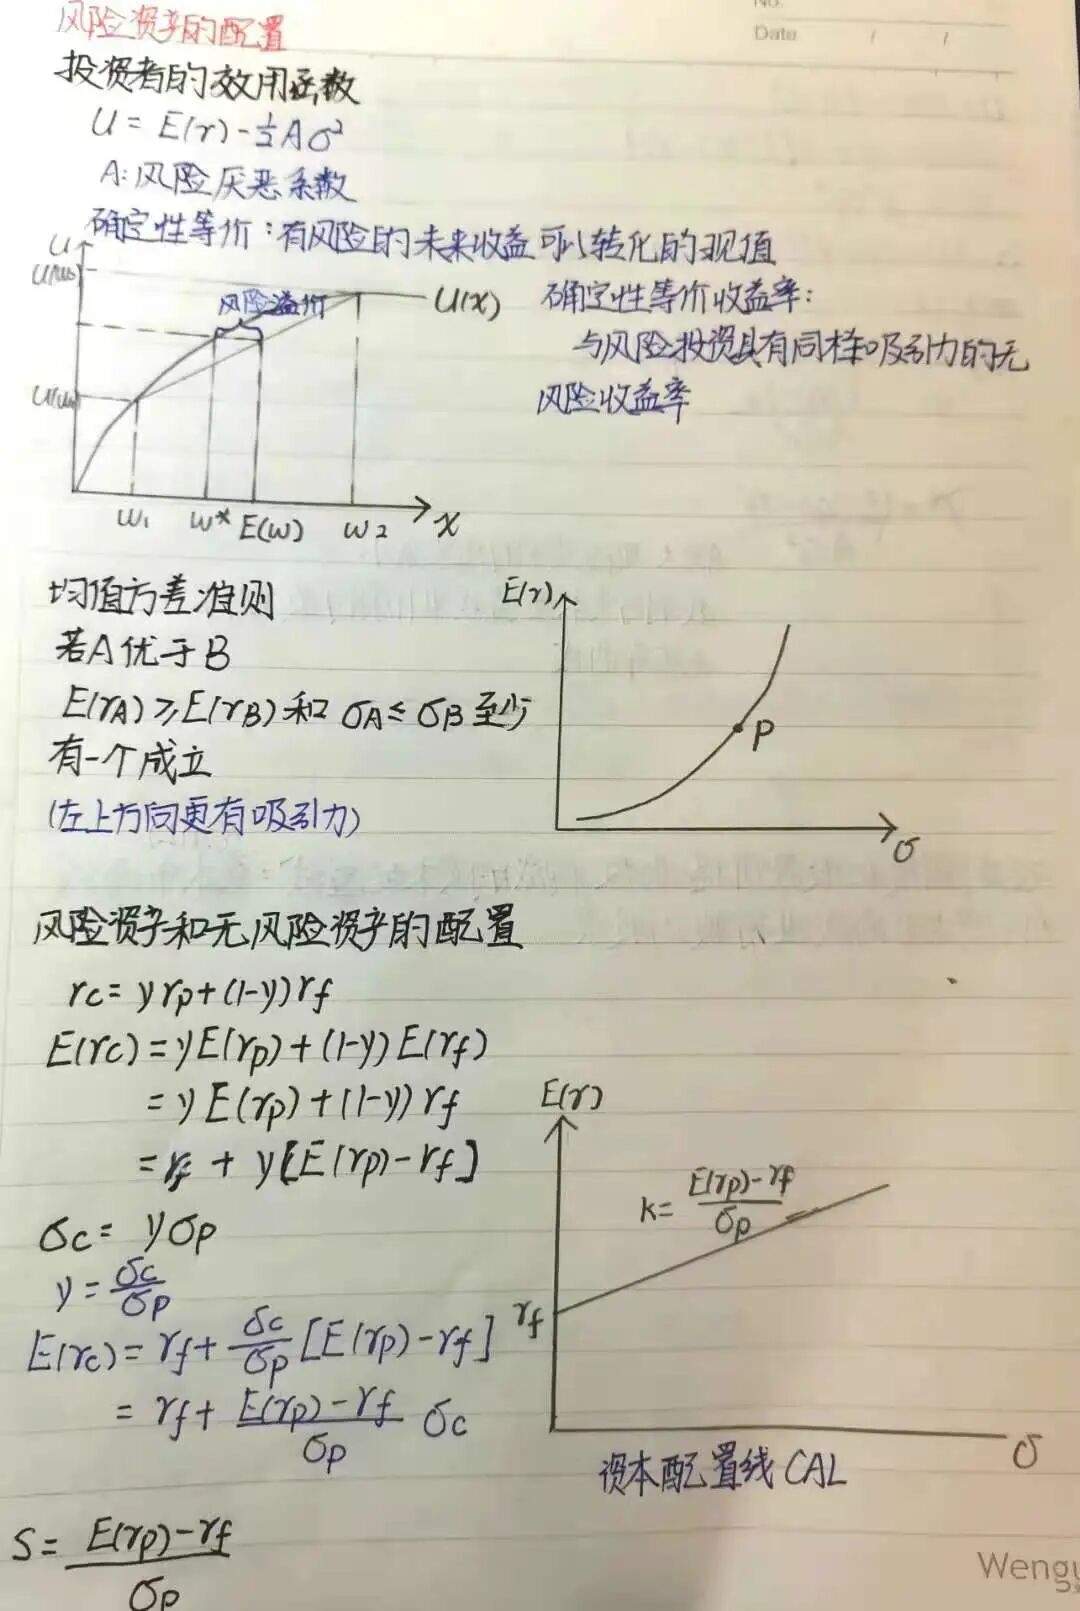 No.
Date / /
风险资产的配置
投资者的效用函数
U = E(r) - ½Aσ²
A:风险厌恶系数
确定性等价:有风险的未来收益可以转化的现值
U
风险溢价
U(x)
w₁ w* E(w) w₂ x
确定性等价收益率:
与风险投资具有同样吸引力的无
风险收益率
均值方差准则
若A优于B
E(rA)≥E(rB)和 σA≤σB至少
有一个成立
(左上方向更有吸引力)
E(r)
P
σ
风险资产和无风险资产的配置
rc = yrp+(1-y)rf
E(rc) = yE(rp)+(1-y)E(rf)
= yE(rp)+(1-y)rf
= rf + y[E(rp)-rf]
σc = yσp
y = σc/σp
E(rc) = rf + σc/σp [E(rp)-rf]
= rf + E(rp)-rf/σp σc
S = E(rp)-rf/σp
E(r)
k = E(rp)-rf/σp
rf
σ
资本配置线 CAL